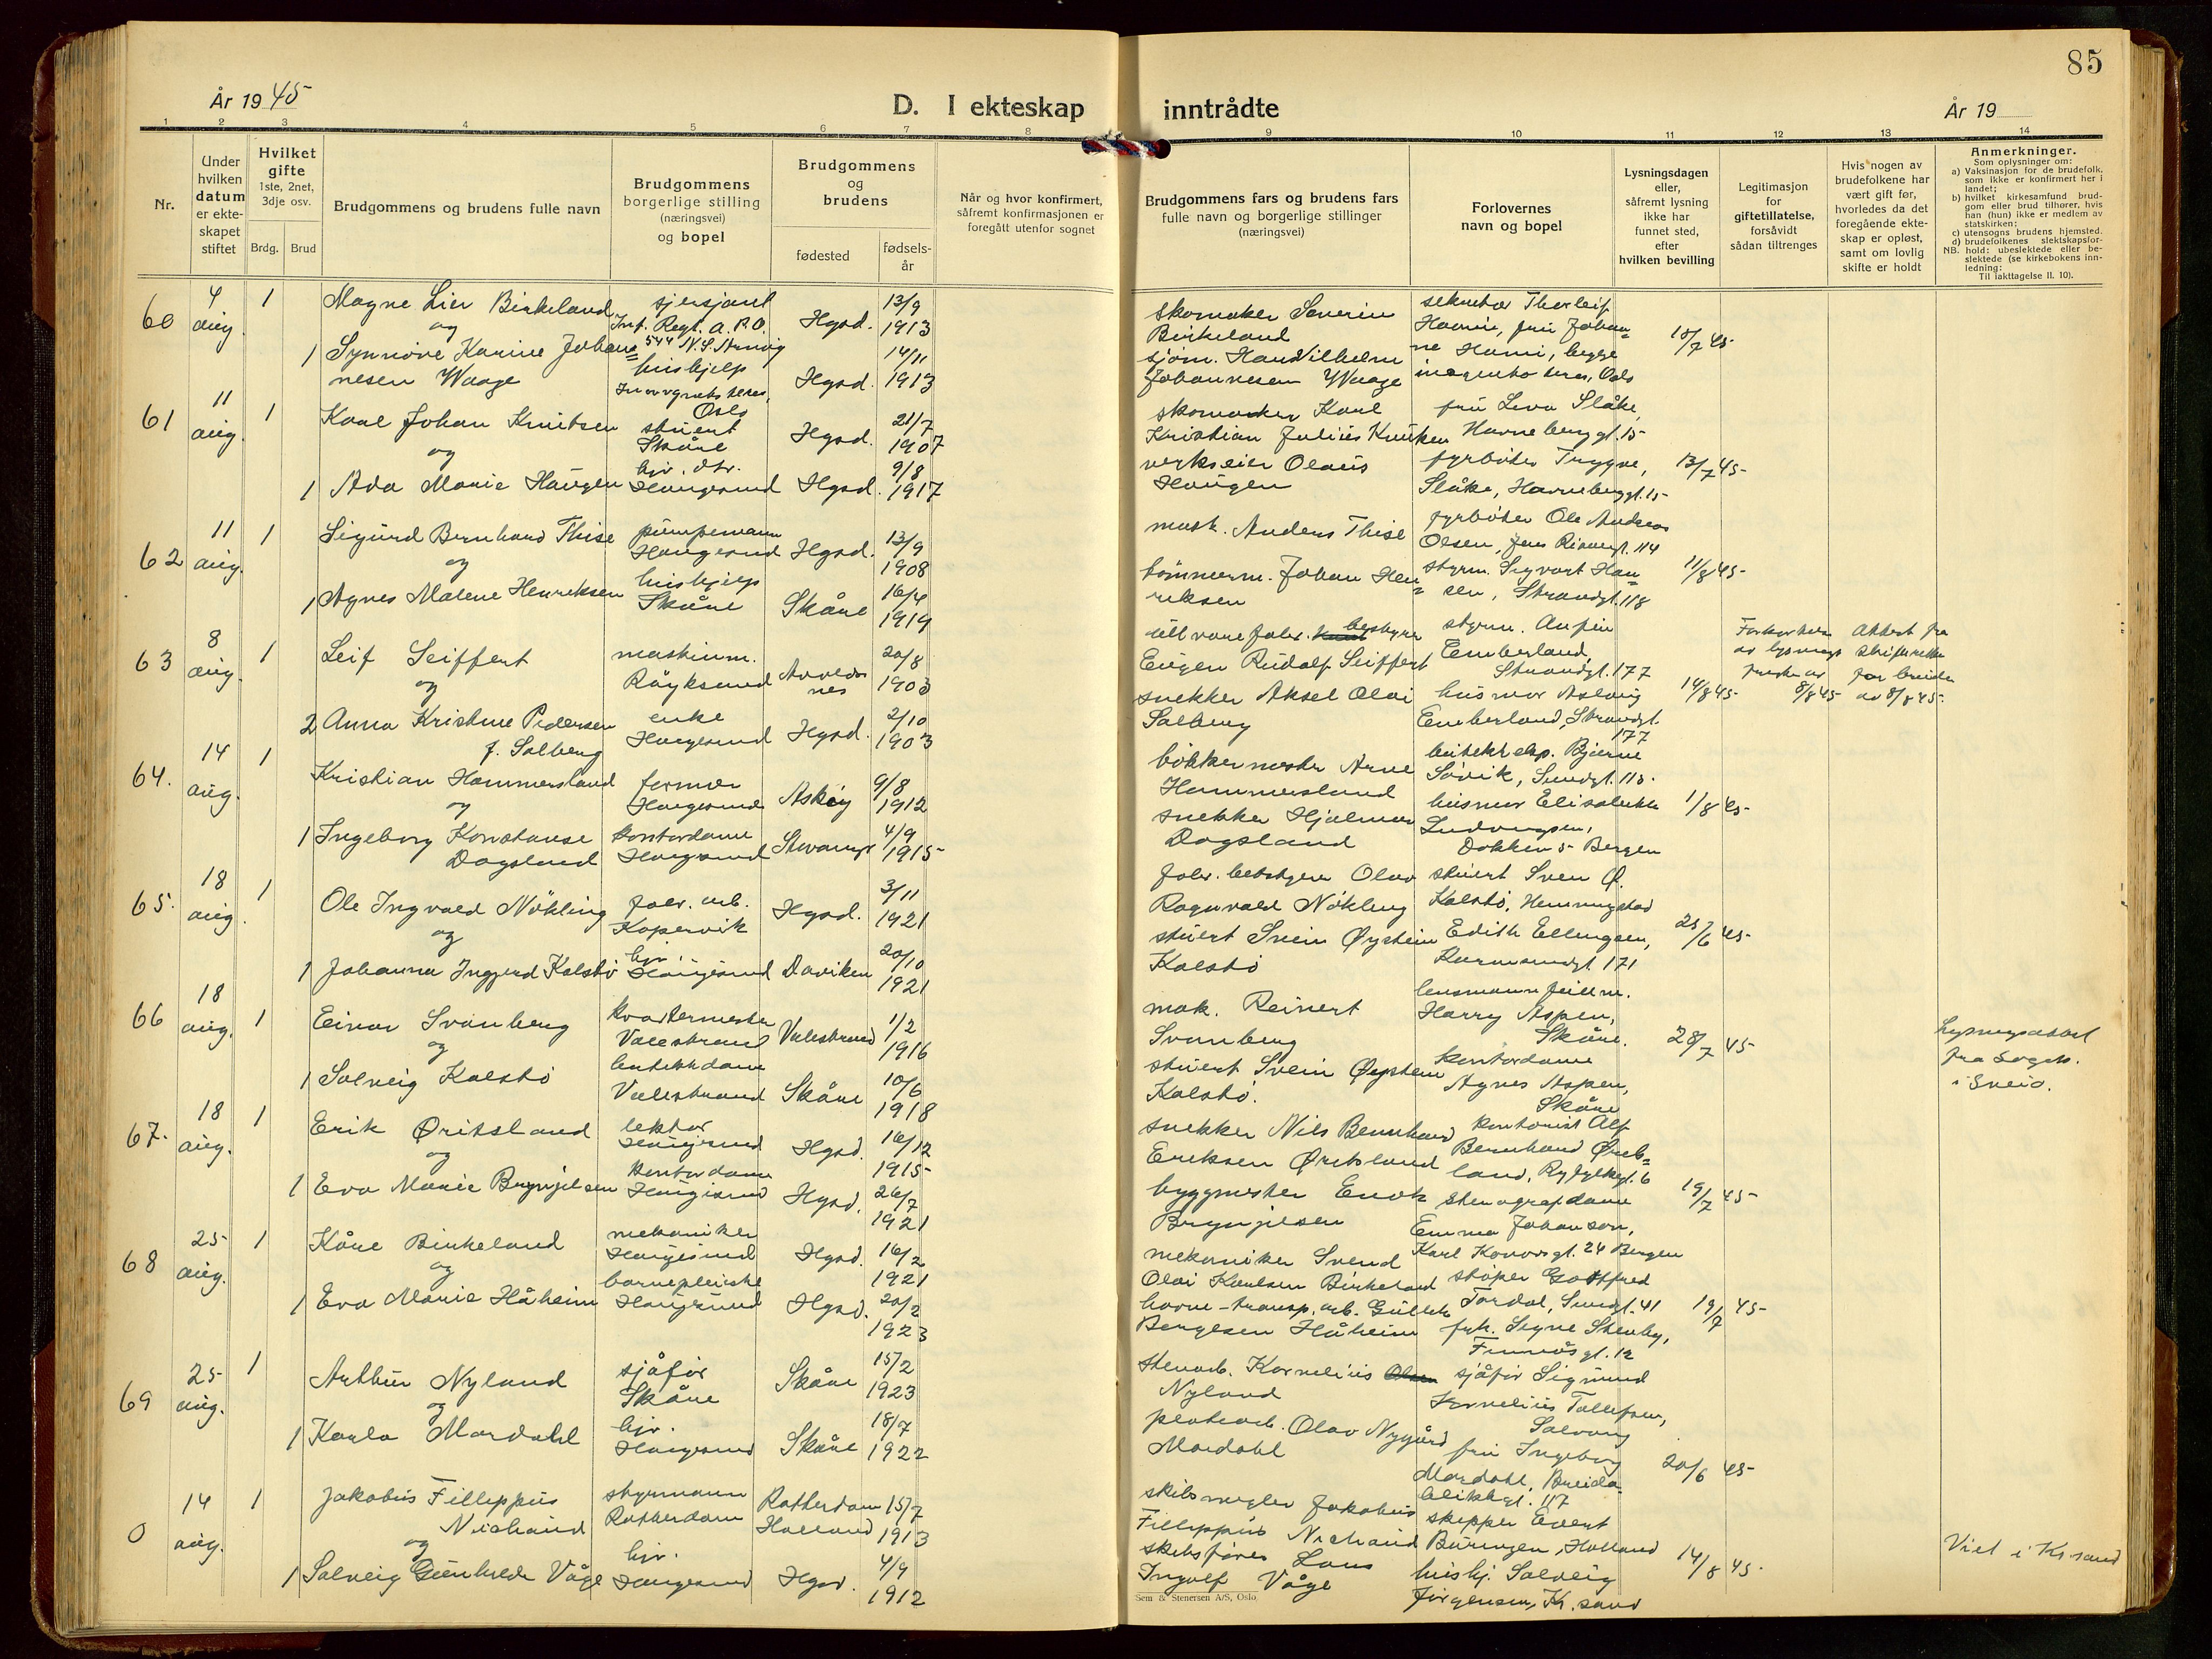 85
År 1945
D. I ekteskap inntrådte
År 19
1 2 3 4 5 6 7 8 9 10 11 12 13 14
Nr.
Under
hvilken
datum
er ekte-
skapet
stiftet
Hvilket
gifte
1ste, 2net,
3dje osv.
Brdg. Brud
Brudgommens og brudens fulle navn
Brudgommens
borgerlige stilling
(næringsvei)
og bopel
Brudgommens
og
brudens
fødested
fødsels-
år
Når og hvor konfirmert,
såfremt konfirmasjonen er
foregått utenfor sognet
Brudgommens fars og brudens fars
fulle navn og borgerlige stillinger
(næringsvei)
Forlovernes
navn og bopel
Lysningsdagen
eller,
såfremt lysning
ikke har
funnet sted,
efter
hvilken bevilling
Legitimasjon
for
giftetillatelse,
forsåvidt
sådan tiltrenges
Hvis nogen av
brudefolkene har
vært gift før,
hvorledes da det
foregående ekte-
skap er opløst,
samt om lovlig
skifte er holdt
Anmerkninger.
Som oplysninger om:
a) Vaksinasjon for de brudefolk,
som ikke er konfirmert her i
landet;
b) hvilket kirkesamfund brud-
gom eller brud tilhører, hvis
han (hun) ikke er medlem av
statskirken;
c) utensogns brudens hjemsted.
d) brudefolkenes slektskapsfor-
NB. hold: ubeslektede eller be-
slektede (se kirkebokens inn-
ledning:
Til iakttagelse II. 10).
60
4
aug.
1
Magne Lier Birkeland
og
1 Synnøve Karine Johan=
nesen Waage
sjersjant
Inf. Regt.
hushjelp
Oslo
Hgsd. 13/9 1913
Hgsd. 14/11 1913
skomaker Severin
Birkeland
sjøm. Hans Vilhelm
Johannesen Waage
sekretær Thorleif
10/7 45
61
11
aug.
1
Karl Johan Knutsen
og
1 Ada Marie Haugen
stuert
Skåre
hjv. dtr.
Haugesund
Hgsd. 21/7 1907
Hgsd. 9/8 1917
skomaker Karl
Kristian Julius Knutsen
verkseier Olaus
Haugen
fru Lova Slåke,
Havneberggt. 15
fyrbøter Trygve
Slåke, Havneberggt. 15
13/7 45
62
11
aug.
1
Sigurd Bernhard Thise
og
1 Agnes Malene Henriksen
pumpemann
Haugesund
hushjelp
Skåre
Hgsd. 13/9 1908
Skåre 16/4 1919
mask. Anders Thise
tømmerm. Johan Hen=
riksen
fyrbøter Ole Andreas
Olsen,
styrm. Sigvart Han=
sen, Strandgt. 118
11/8 45
63
8
aug.
1
Leif Seiffert
og
2 Anna Kristine Pedersen
f. Solberg
maskinm.
Røyksund
enke
Haugesund
20/8 1903
Hgsd. 2/10 1903
ullvarefabr. bestyrer
Eugen Rudolf Seiffert
snekker Aksel Olai
Solberg
styrm.
Emberland,
Strandgt. 177
husmor Aslaug
Emberland, Strandgt.
177
14/8 45
8/8 45
Attest fra
skifteretten
for bruden
av 8/8 45.
64.
14
aug.
1
Kristian Hammersland
og
1 Ingeborg Konstanse
Dagsland
former
Haugesund
kontordame
Haugesund
Askøy 9/8 1912
Stvangr 4/9 1915
bøkkermester Arne
Hammersland
snekker Hjalmar
Dagsland
butekkeksp. Bjarne
Søvik, Sundgt. 115.
husmor Elisabeth
Ludvigsen,
Dokken 5 Bergen
1/8 45
65.
18
aug.
1
Ole Ingvald Nøkling
og
1 Johanna Ingjerd Kalstø
fabr. arb.
Kopervik
hjv.
Haugesund
Hgsd. 3/11 1921
Daviken 20/10 1921
fabr. bestyrer Olav
Ragnvald Nøkling
stuert Svein Øystein
Kalstø
stuert Sven Ø.
Kalstø, Hemmingstad
Edith Ellingsen,
Karmsundgt. 171
25/6 45
66
18
aug.
1
Einar Svanberg
og
1 Solveig Kalstø
kvartermester
Valestrand
butikkdame
Valestrand
Valestrand 1/2 1916
Skåre 10/6 1918
mak. Reinert
Svanberg
stuert Svein Øystein
Kalstø.
lensmannfullm.
Harry Aspen,
Skåre.
kontordame
Agnes Aspen,
Skåre
28/7 45
Lysningsattest
fra sogn.
i Sveio.
67.
18
aug.
1
Erik Øritsland
og
1 Eva Marie Brynjelsen
lektor
Haugesund
kontordame
Haugesund
Hgsd. 16/12 1915
Hgsd. 26/7 1921
snekker Nils Bernhard
Eriksen Øritsland
byggmester Enok
Brynjelsen
kontorist Alf
Bernhard Ørits=
land, Ryfylkegt. 6
stenografdame
Emma Johanson,
Karl Konowsgt. 24 Bergen
19/7 45
68
25
aug.
1
Kåre Birkeland
og
1 Eva Marie Håheim
mekaniker
Haugesund
barnepleierske
Haugesund
Hgsd. 16/2 1921
Hgsd. 20/2 1923
mekaniker Svend
Olai Karlsen Birkeland
havne-transp. arb. Gullek
Bergesen Håheim
støper Gottfred
Tordal, Sundgt. 41
frk. Signe Stenby,
Finnåsgt. 12
19/7 45
69
25
aug.
1
Arthur Nyland
og
1 Karla Mardahl
sjåfør
Skåre
hjv.
Haugesund
Skåre 15/2 1923
Skåre 18/7 1922
stenarb. Kornelius Olsen
Nyland
platearb. Olav Nygård
Mardahl
sjåfør Sigmund
Kornelius Tollefsen,
Salvang
fru Ingeborg
Mardahl, Breida-
blikkgt. 117
20/6 45
0
14
aug.
1
Jakobus Fillippus
Nichaud
og
1 Solveig Gunhilde Våge
styrmann
Rotterdam
hjv.
Haugesund
Rotterdam
Holland 15/7 1913
Hgsd. 4/9 1912
skibsmegler Jakobus
Fillippus Nichaud
skibsfører Lars
Ingolf Våge
skipper Evert
Buringen, Holland
hushj. Solveig
Jørgensen, Kr.sand
14/8 45.
Viet i Kr.sand
Sem & Stenersen A/S, Oslo.